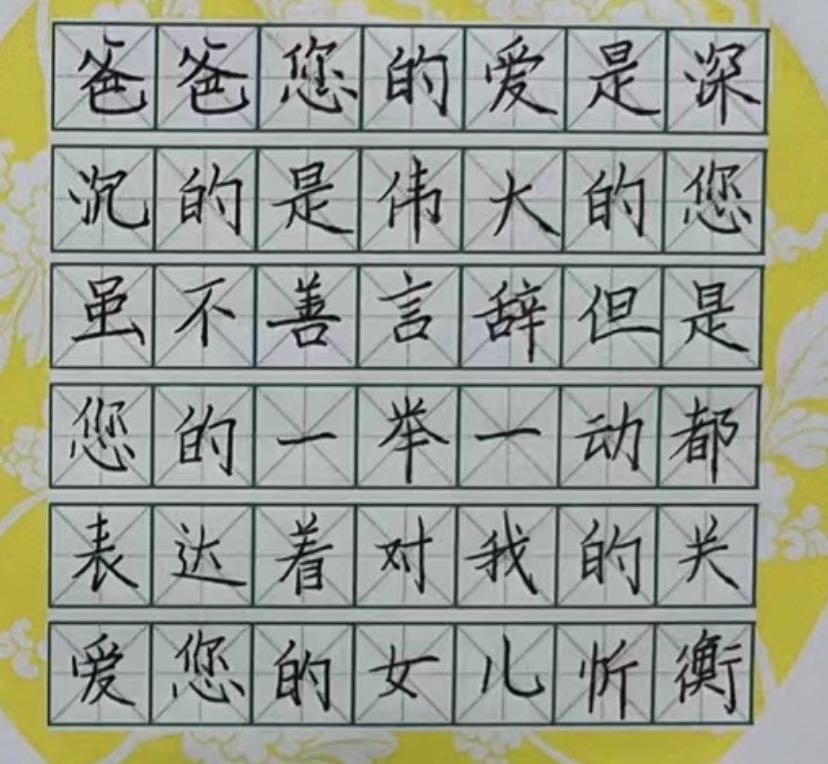 爸爸您的爱是深
沉的是伟大的您
虽不善言辞但是
您的一举一动都
表达着对我的关
爱您的女儿忻衡